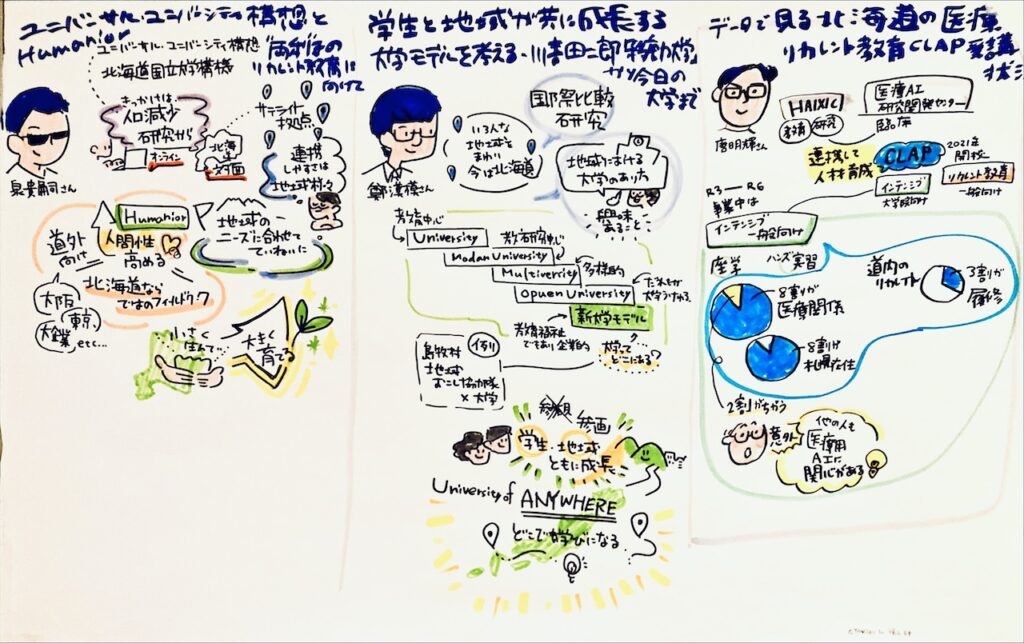 ユニバーサル・ユニバーシティ構想と
Humanior
リカレント教育に
向けて
ユニバーサル・ユニバーシティ構想
北海道国立大学機構
きっかけは、
人口減少
研究から
オンライン
サテライト
拠点
北海道
対面
連携
しやすさは
地域村々
泉 貴嗣さん
Humanior
人間性
高める
道外
向け
地域の
ニーズに合わせて
ていねいに
北海道なら
ではのフィールドワーク
大阪
東京、
大企業
etc...
小さく
生んで
大きく
育てる
学生と地域が共に成長する
大学モデルを考える・川喜田二郎
今日の
大学まで
国際比較
研究
いろんな
地域を
まわり
今は北海道
地域における
大学のあり方
興味
あること
鄭漢模さん
教育中心
University
教・研究中心
Modan University
Multiversity
多様的
Opuen University
だれでも
新大学モデル
教育福祉
でもあり企業的
大学って
どこにある?
例)
島牧村
地域
おこし協力隊
×大学
参画
学生・地域
ともに成長
University of ANYWHERE
どこでも学びになる
データで見る北海道の医療
リカレント教育CLAP
唐明輝さん
HAIXIC
教育 研究
医療AI
研究開発センター
臨床
連携して
人材育成
CLAP
2021年
開校
インテンシブ
大学院向け
リカレント教育
一般向け
R3―R6
事業中は
インテンシブ
一般向け
座学
ハンズ実習
8割が
医療関係
8割が
札幌在住
道内の
リカレント
3割が
履修
2割がちがう
意外
他の人も
医療用
AIに
関心がある